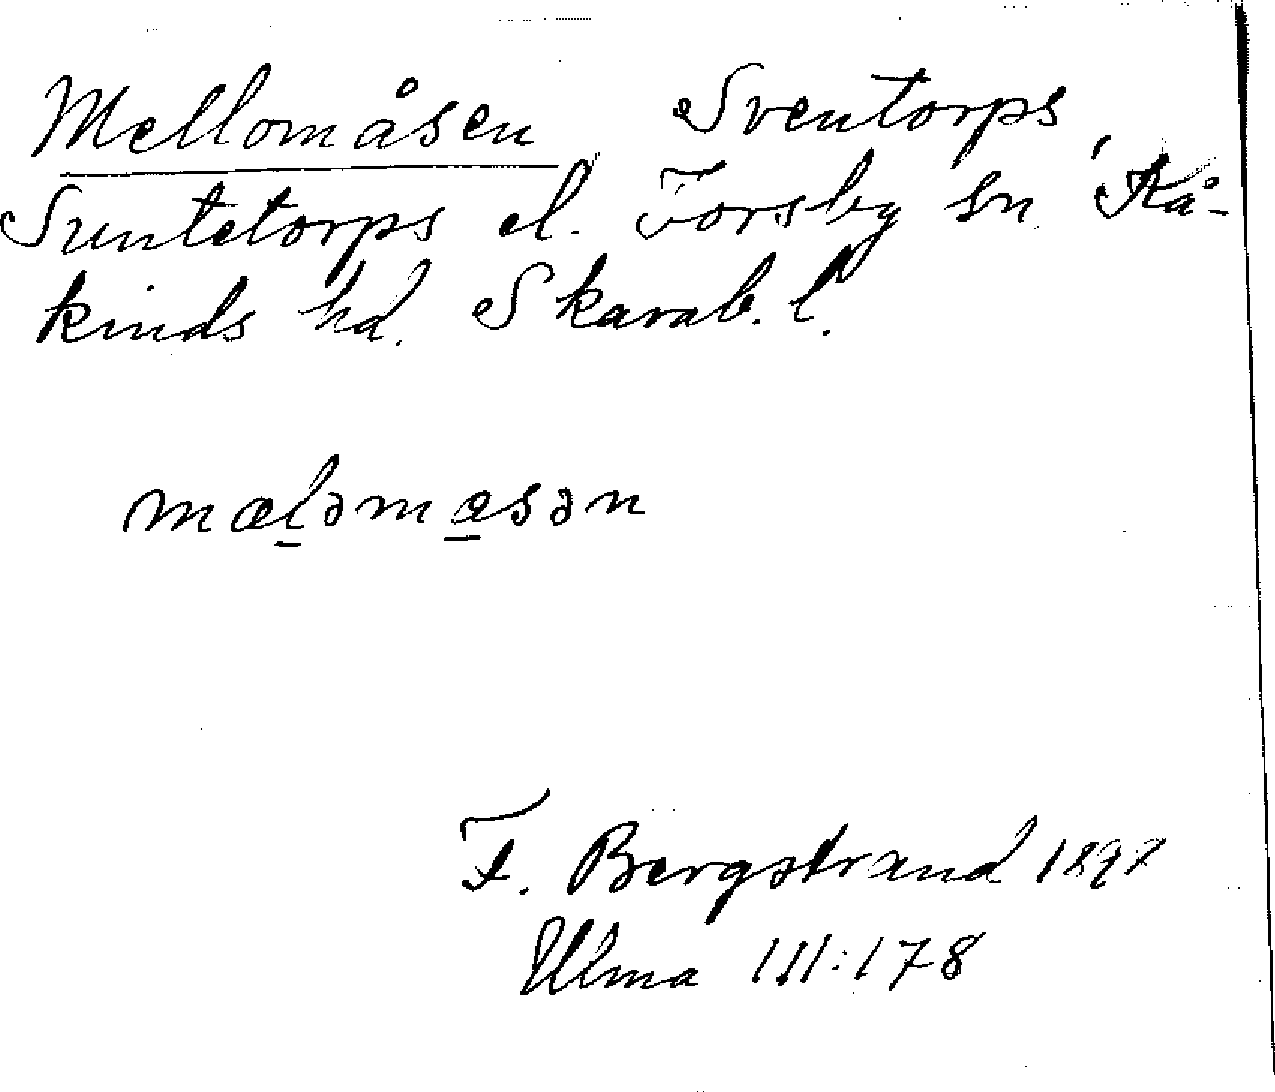 Mellomåsen, Sventorps,
Suntetorps el. Forsby sn, Kå-
kinds hd. Skarab. l.
mælǝmasǝn
F. Bergstrand 1897
Ulma III:178